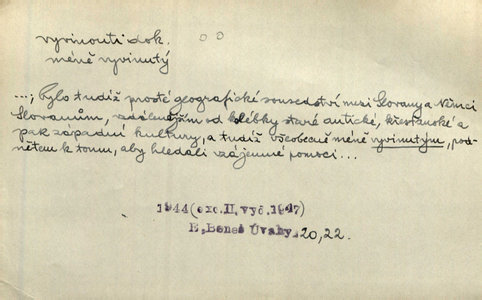 vyvinouti dok.
méně vyvinutý
...; bylo tudíž prosté geografické sousedství mezi Slovany a Němci
Slovanům, vzdálenějším od kolébky staré antické, křesťanské a
pak západní kultury, a tudíž všeobecně méně vyvinutým, pod-
nětem k tomu, aby hledali vzájemné pomoci...
1944(exc.II.vyd.1947)
E. Beneš Úvahy, 20, 22.